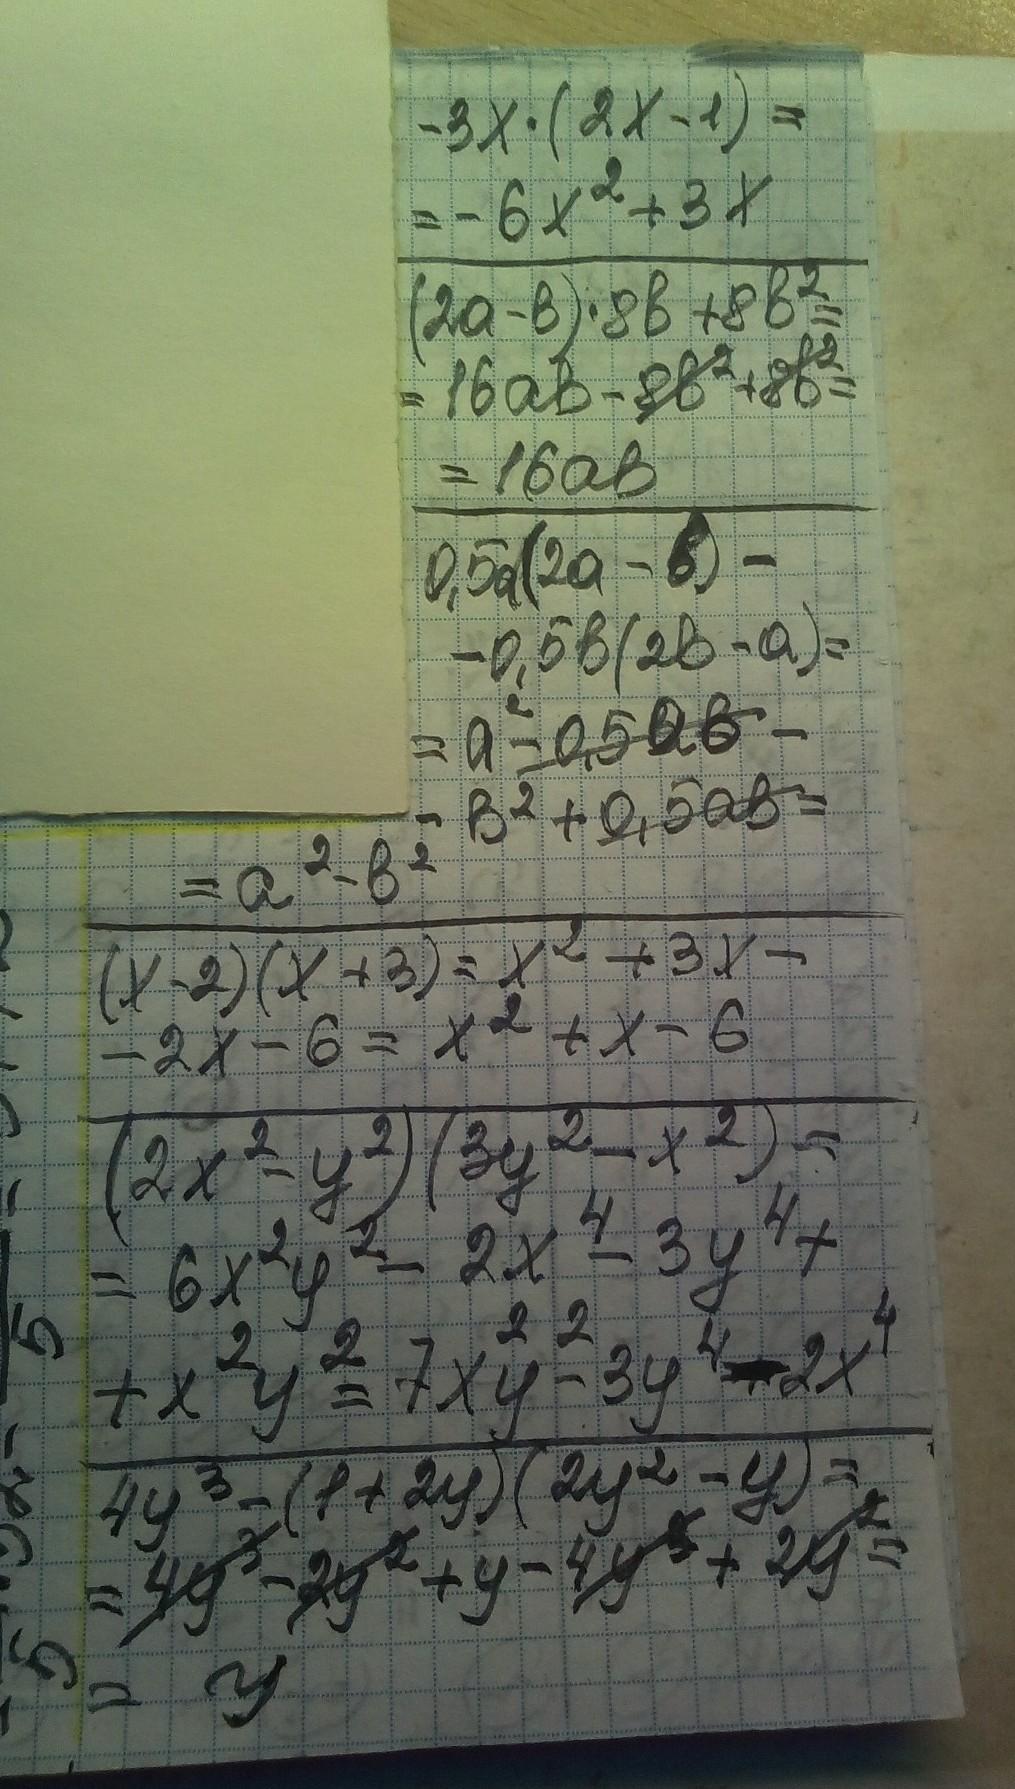 -3x·(2x-1)=
=-6x²+3x
(2a-b)·8b+8b²=
=16ab-8b²+8b²=
=16ab
0,5a(2a-b)-
-0,5b(2b-a)=
=a²-0,5ab-
-b²+0,5ab=
=a²-b²
(x-2)(x+3)=x²+3x-
-2x-6=x²+x-6
(2x²-y²)(3y²-x²)=
=6x²y²-2x⁴-3y⁴+
+x²y²=7x²y²-3y⁴-2x⁴
4y³-(1+2y)(2y²-y)=
=4y³-2y²+y-4y³+2y²=
=y